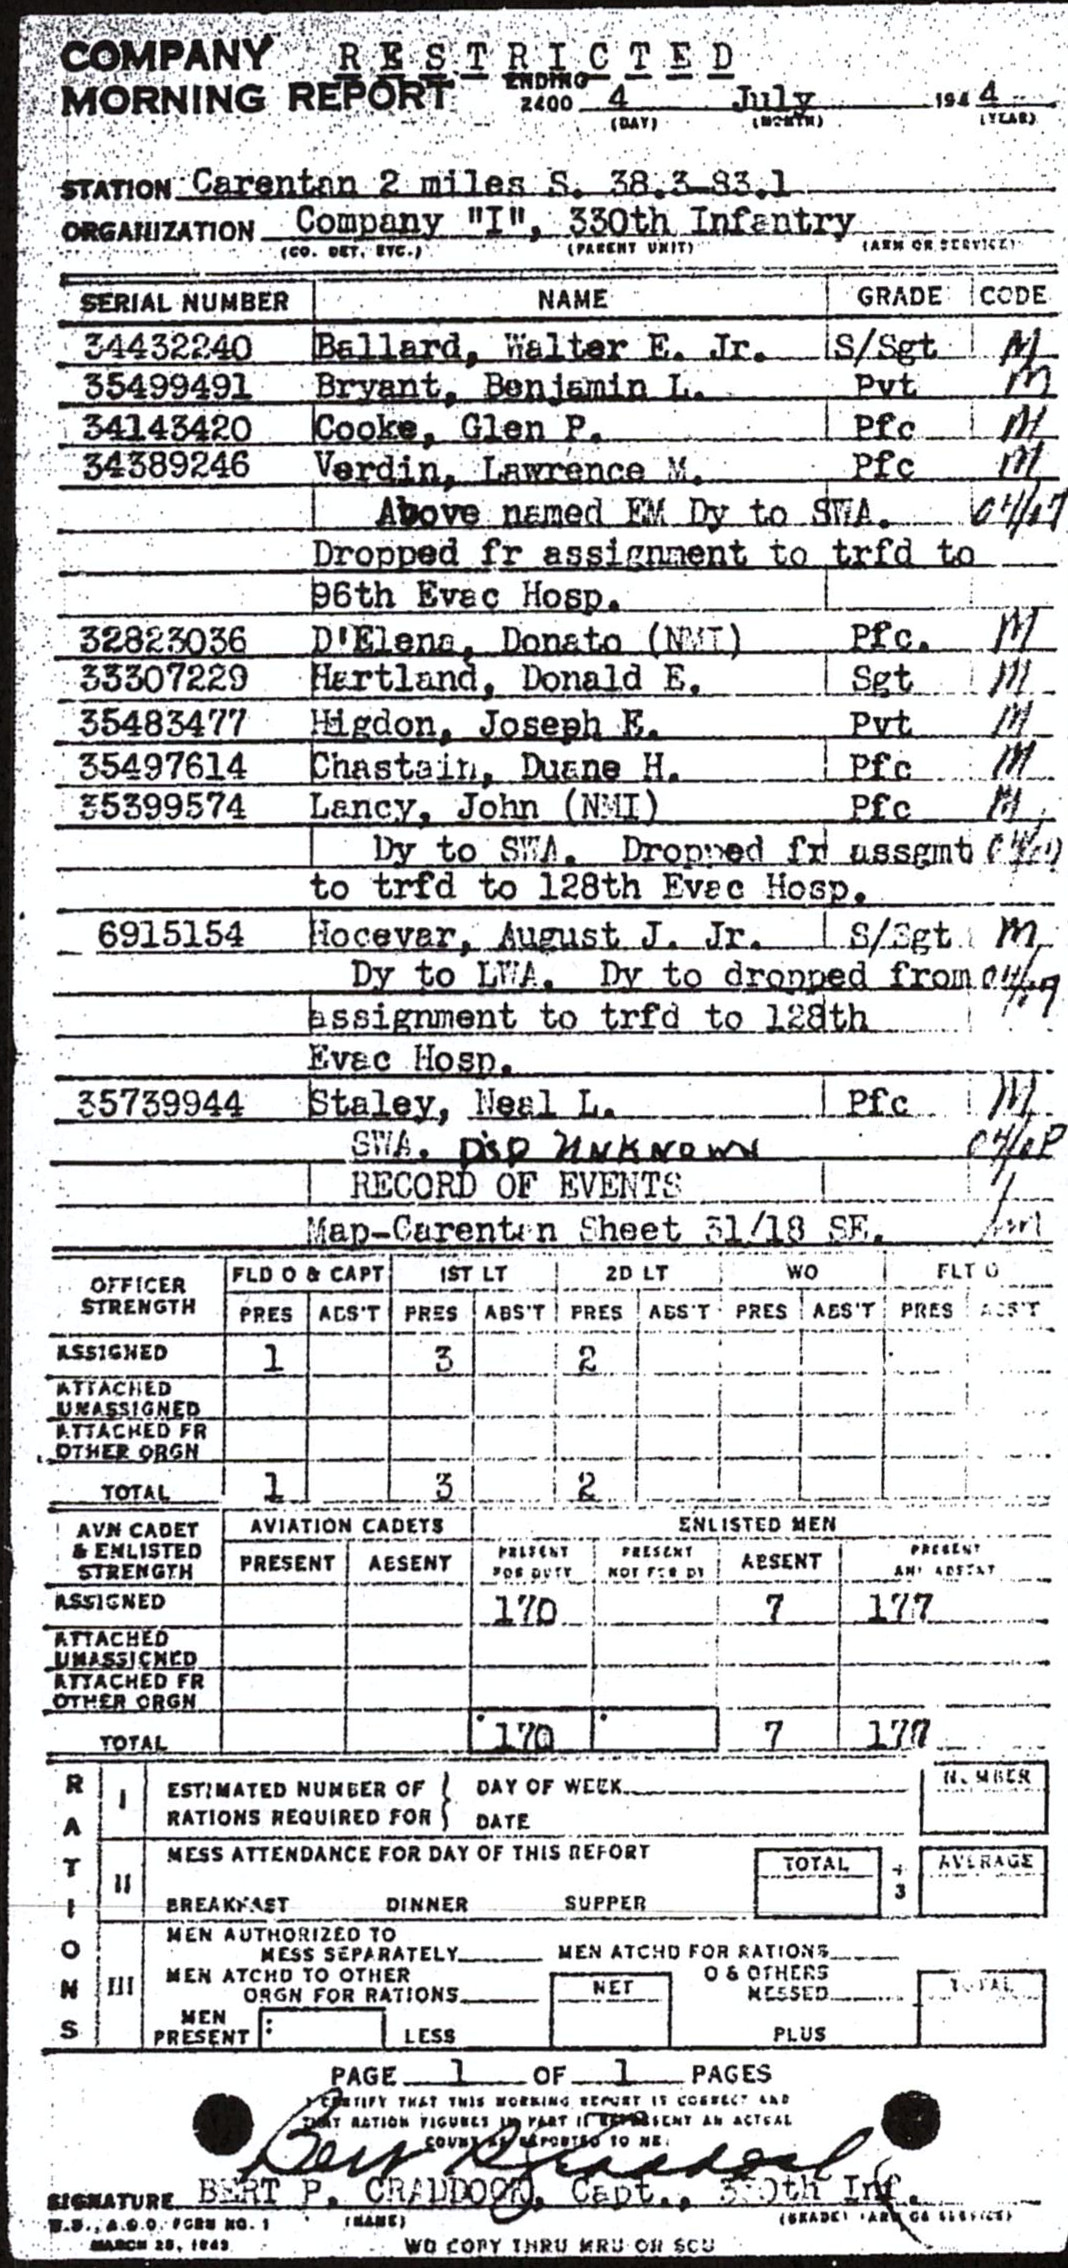 COMPANY R E S T R I C T E D
MORNING REPORT ENDING 2400 4 July 1944
(DAY) (MONTH) (YEAR)
STATION Carentan 2 miles S. 38.3-83.1
ORGANIZATION Company "I", 330th Infantry
(CO. DET, ETC.) (PARENT UNIT) (ARM OR SERVICE)
SERIAL NUMBER NAME GRADE CODE
34432240 Ballard, Walter E. Jr. S/Sgt M
35499491 Bryant, Benjamin L. Pvt M
34143420 Cooke, Glen P. Pfc M
34389246 Verdin, Lawrence M. Pfc M
Above named EM Dy to SWA.
Dropped fr assignment to trfd to
96th Evac Hosp.
32823036 D'Elena, Donato (NMI) Pfc. M
33307229 Hartland, Donald E. Sgt M
35483477 Higdon, Joseph E. Pvt M
35497614 Chastain, Duane H. Pfc M
35399574 Lancy, John (NMI) Pfc M
Dy to SWA. Dropped fr assgmt
to trfd to 128th Evac Hosp.
6915154 Hocevar, August J. Jr. S/Sgt M
Dy to LWA. Dy to dropped from
assignment to trfd to 128th
Evac Hosp.
35739944 Staley, Neal L. Pfc M
SWA. DISP UNKNOWN
RECORD OF EVENTS
Map-Carentan Sheet 31/18 SE.
OFFICER STRENGTH FLD O & CAPT 1ST LT 2D LT WO FLT O
PRES ABS'T PRES ABS'T PRES ABS'T PRES ABS'T PRES ABS'T
ASSIGNED 1 3 2
ATTACHED UNASSIGNED
ATTACHED FR OTHER ORGN
TOTAL 1 3 2
AVN CADET & ENLISTED STRENGTH AVIATION CADETS ENLISTED MEN
PRESENT ABSENT PRESENT FOR DUTY PRESENT NOT FOR DY ABSENT PRESENT AND ABSENT
ASSIGNED 170 7 177
ATTACHED UNASSIGNED
ATTACHED FR OTHER ORGN
TOTAL 170 7 177
RATIONS
I ESTIMATED NUMBER OF RATIONS REQUIRED FOR DAY OF WEEK DATE NUMBER
II MESS ATTENDANCE FOR DAY OF THIS REPORT TOTAL ÷ 3 AVERAGE
BREAKFAST DINNER SUPPER
III MEN AUTHORIZED TO MESS SEPARATELY MEN ATCHD FOR RATIONS
MEN ATCHD TO OTHER ORGN FOR RATIONS NET O & OTHERS MESSED TOTAL
MEN PRESENT LESS PLUS
PAGE 1 OF 1 PAGES
I CERTIFY THAT THIS MORNING REPORT IS CORRECT AND
THAT RATION FIGURES IN PART II REPRESENT AN ACTUAL
COUNT AS REPORTED TO ME.
Bert P Craddock
SIGNATURE BERT P. CRADDOCK, Capt., 330th Inf.
(NAME) (GRADE) (ARM OR SERVICE)
W.D., A.G.O. FORM NO. 1
MARCH 25, 1943 WD COPY THRU MRU OR SCU